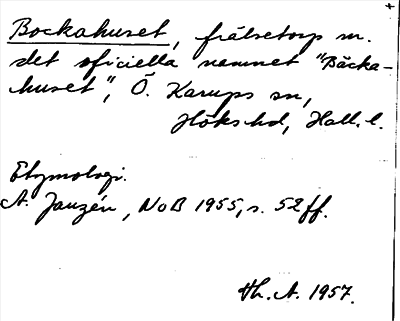 Bockahuset, frälsetorp m.
det officiella namnet "Bäcka-
huset", Ö. Karups sn,
Höks hd, Hall. l.
Etymologi.
A. Janzén, NoB 1955, s. 52 ff.
Hh. A. 1957.